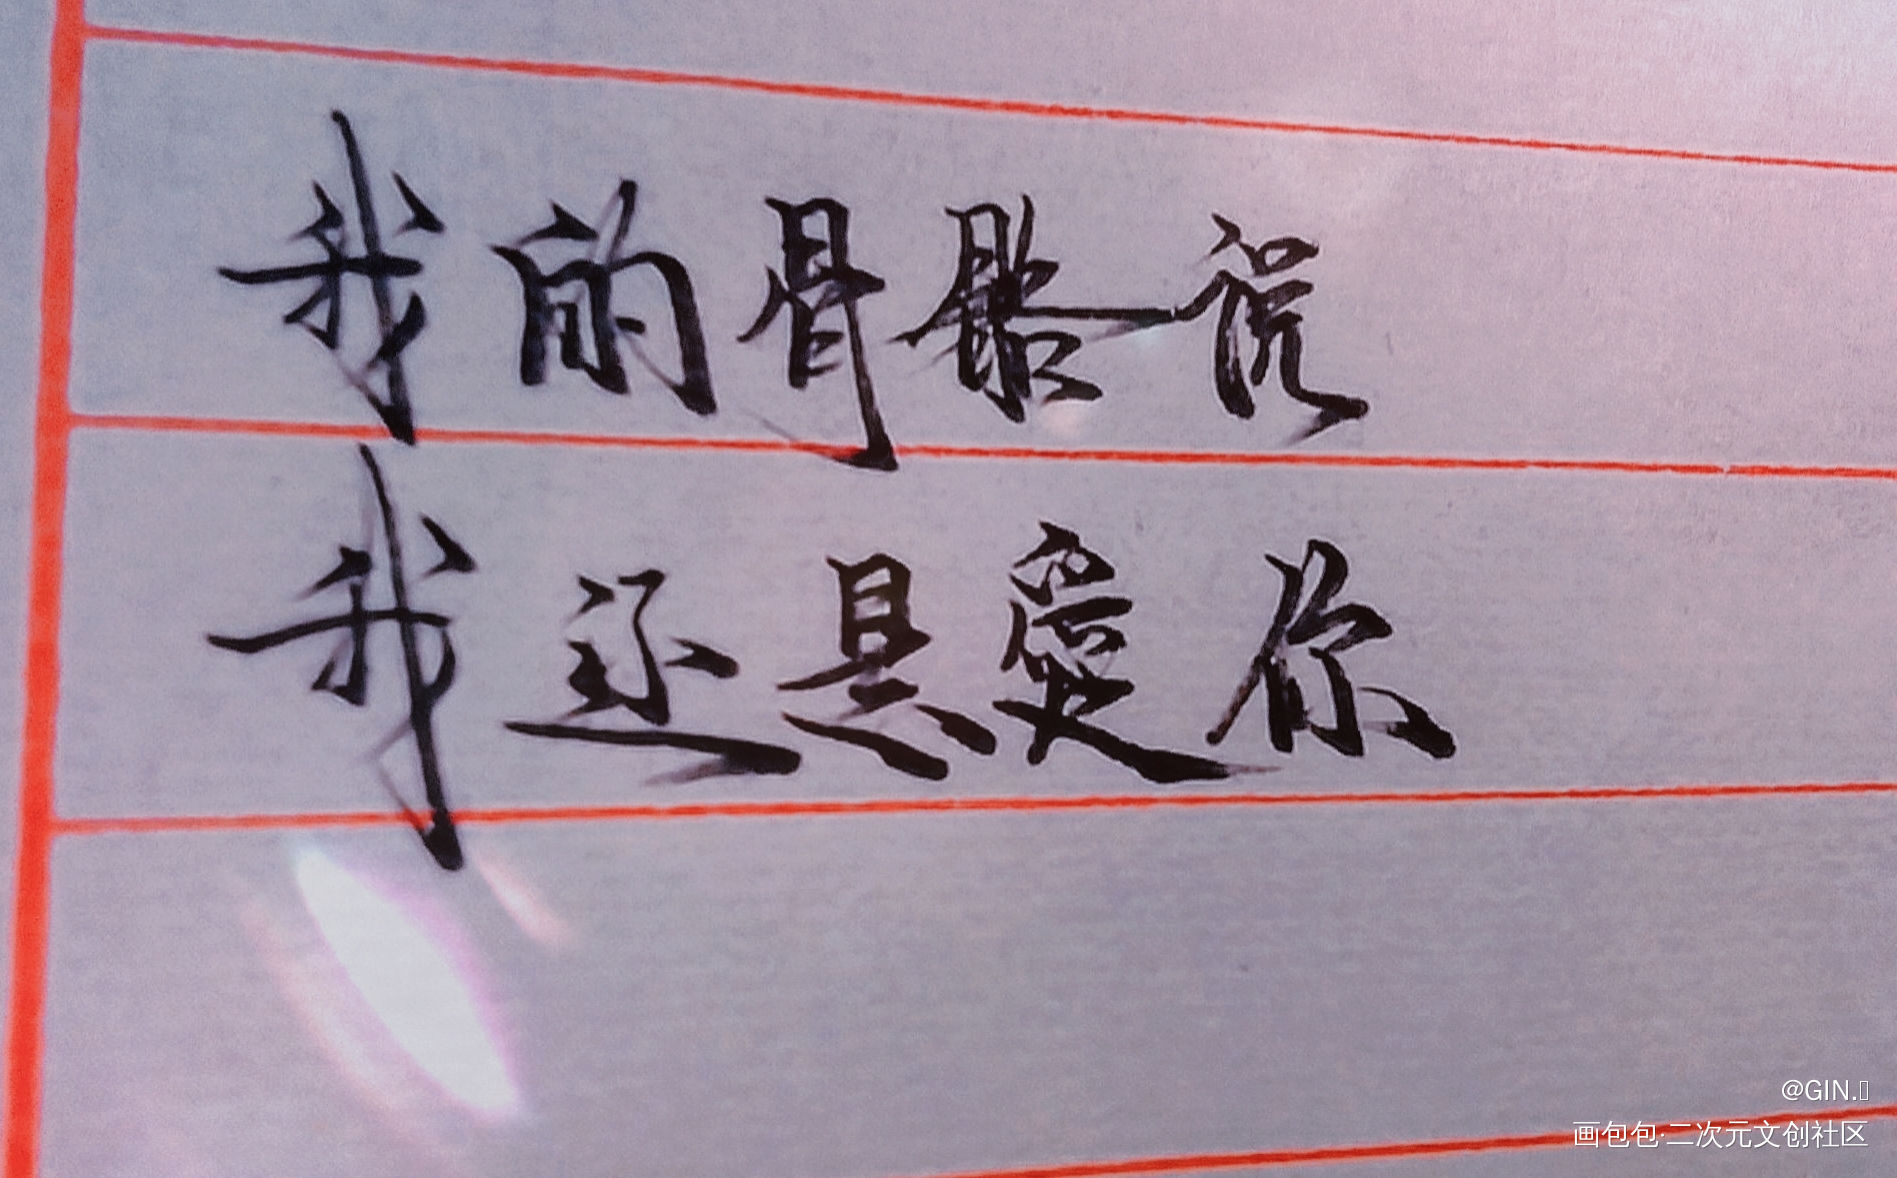 我的骨骼说
我还是爱你
@GIN.
画包包·二次元文创社区